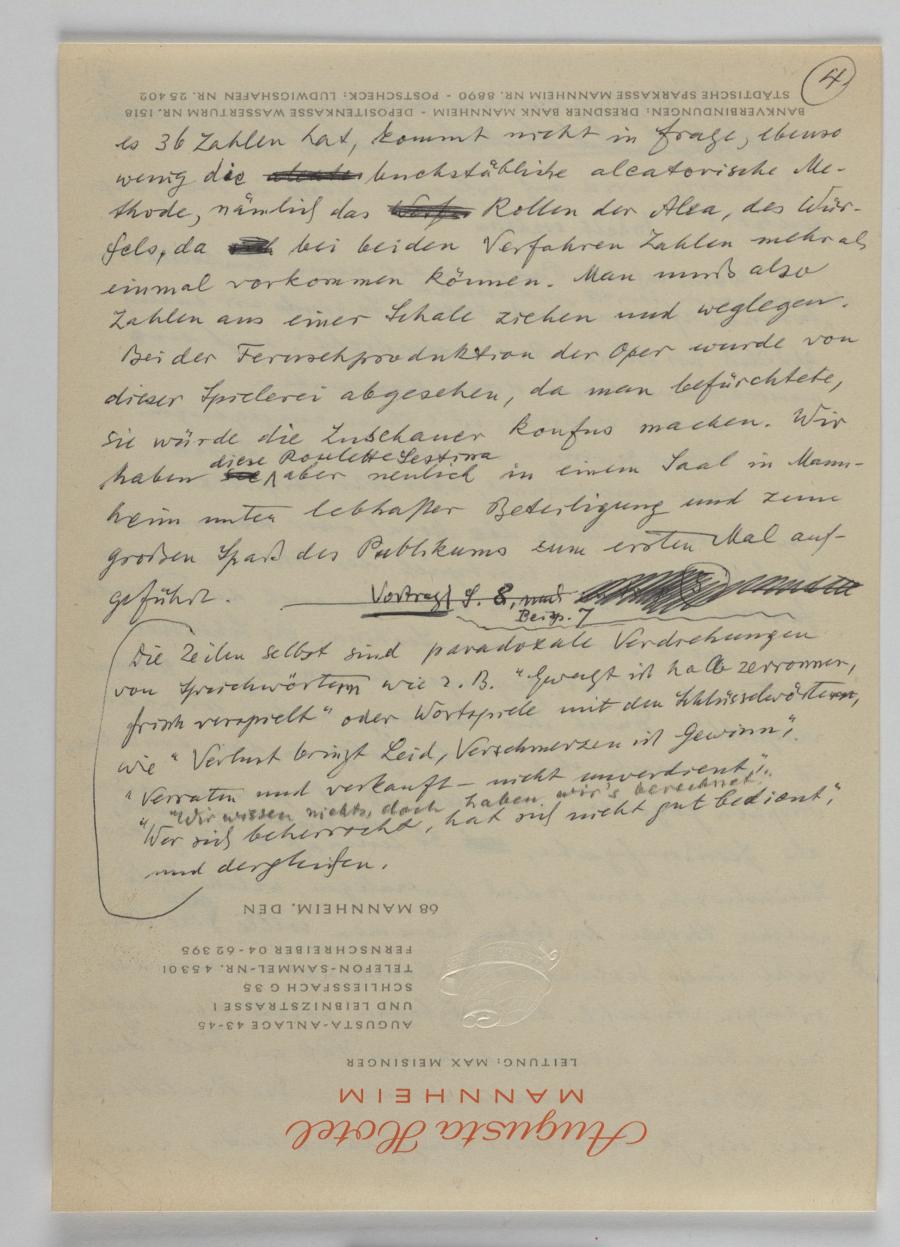 4
STÄDTISCHE SPARKASSE MANNHEIM NR. 8890 - POSTSCHECK: LUDWIGSHAFEN NR. 25402
BANKVERBINDUNGEN: DRESDNER BANK MANNHEIM - DEPOSITENKASSE WASSERTURM NR. 1518
es 36 Zahlen hat, kommt nicht in frage, ebenso
wenig die buchstäbliche aleatorische Me-
thode, nämlich das Rollen der Alea, des Wür-
fels, da bei beiden Verfahren Zahlen mehr als
einmal vorkommen können. Man muß also
Zahlen aus einer Schale ziehen und weglegen.
Bei der Fernsehproduktion der Oper wurde von
dieser Spielerei abgesehen, da man befürchtete,
sie würde die Zuschauer konfus machen. Wir
diese Roulette Sestina
haben aber neulich in einem Saal in Mann-
heim unter lebhafter Beteiligung und zum
großen Spaß des Publikums zum ersten Mal auf-
geführt. Vortrag S. 8, und
Beisp. 7
Die Zeilen selbst sind paradoxale Verdrehungen
von Sprichwörtern wie z. B. "Gewagt ist halb zerronnen,
frisch verspielt" oder Wortspiele mit den Schlüsselwörtern,
wie "Verlust bringt Leid, Verschmerzen ist Gewinn",
"Verraten und verkauft – nicht unverdient",
"Wir wissen nichts, doch haben wir's berechnet"
"Wer sich beherrscht, hat sich nicht gut bedient",
und dergleichen.
68 MANNHEIM, DEN
FERNSCHREIBER 04-62395
TELEFON-SAMMEL-NR. 45301
SCHLIESSFACH G 35
UND LEIBNIZSTRASSE 1
AUGUSTA-ANLAGE 43-45
LEITUNG: MAX MEISINGER
MANNHEIM
Augusta Hotel